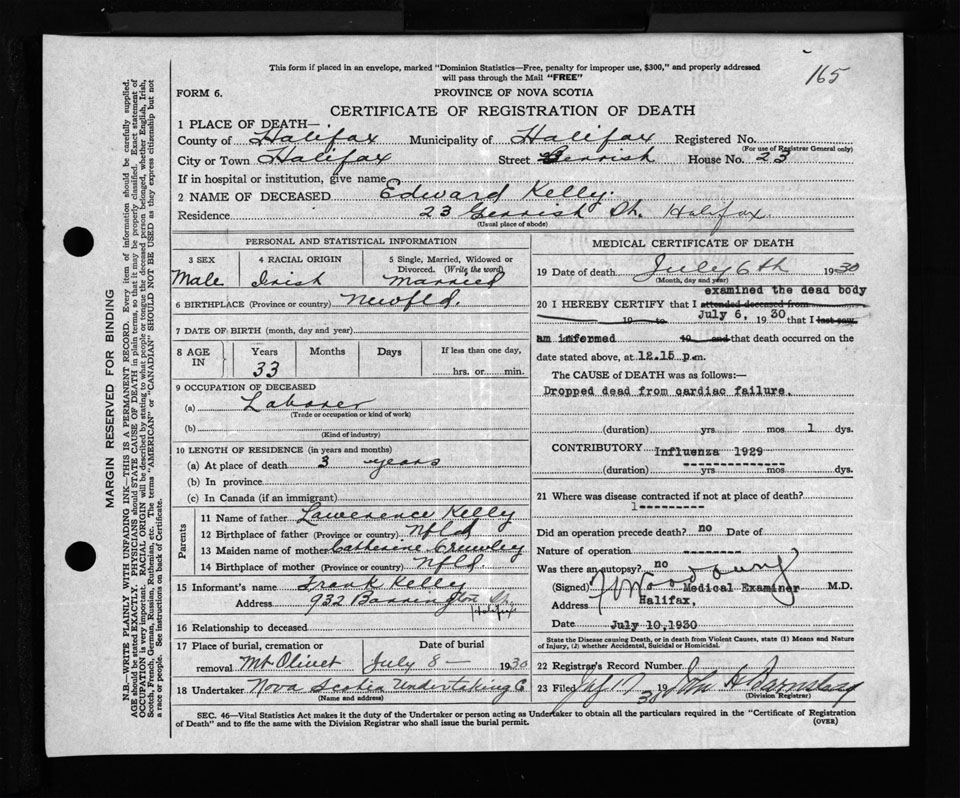 165
This form if placed in an envelope, marked "Dominion Statistics—Free, penalty for improper use, $300," and properly addressed
will pass through the Mail "FREE"
FORM 6.
PROVINCE OF NOVA SCOTIA
CERTIFICATE OF REGISTRATION OF DEATH
1 PLACE OF DEATH—
County of Halifax Municipality of Halifax Registered No.
(For use of Registrar General only)
City or Town Halifax Street Gerrish House No. 23
If in hospital or institution, give name
2 NAME OF DECEASED Edward Kelly.
Residence 23 Gerrish St. Halifax
(Usual place of abode)
PERSONAL AND STATISTICAL INFORMATION
3 SEX
Male
4 RACIAL ORIGIN
Irish
5 Single, Married, Widowed or
Divorced. (Write the word)
Married
6 BIRTHPLACE (Province or country) Newfld.
7 DATE OF BIRTH (month, day and year)
8 AGE IN
Years Months Days If less than one day,
33 hrs. or min.
9 OCCUPATION OF DECEASED
(a) Laborer
(Trade or occupation or kind of work)
(b)
(Kind of industry)
10 LENGTH OF RESIDENCE (in years and months)
(a) At place of death 3 years
(b) In province
(c) In Canada (if an immigrant)
Parents
11 Name of father Lawerence Kelly
12 Birthplace of father (Province or country) Nfld
13 Maiden name of mother Catherine
14 Birthplace of mother (Province or country) Nfld
15 Informant's name Frank Kelly
Address 932 Barrington St.
Halifax
16 Relationship to deceased
17 Place of burial, cremation or Date of burial
removal Mt Olivet July 8— 1930
18 Undertaker Nova Scotia Undertaking Co
(Name and address)
MEDICAL CERTIFICATE OF DEATH
19 Date of death July 6th 1930
(Month, day and year)
examined the dead body
20 I HEREBY CERTIFY that I attended deceased from
19 to July 6, 1930 that I last saw
am informed 19 and that death occurred on the
date stated above, at 12.15 p.m.
The CAUSE of DEATH was as follows:—
Dropped dead from cardiac failure.
(duration) yrs mos 1 dys.
CONTRIBUTORY Influenza 1929
(duration) yrs mos dys.
21 Where was disease contracted if not at place of death?
1---------
Did an operation precede death? no Date of
Nature of operation ---------
Was there an autopsy? no
(Signed) Medical Examiner M.D.
Address Halifax,
Date July 10,1930
State the Disease causing Death, or in death from Violent Causes, state (1) Means and Nature
of Injury, (2) whether Accidental, Suicidal or Homicidal.
22 Registrar's Record Number
23 Filed 17 1930 John
(Division Registrar)
SEC. 46—Vital Statistics Act makes it the duty of the Undertaker or person acting as Undertaker to obtain all the particulars required in the "Certificate of Registration
of Death" and to file the same with the Division Registrar who shall issue the burial permit.
(OVER)
MARGIN RESERVED FOR BINDING
N.B.—WRITE PLAINLY WITH UNFADING INK—THIS IS A PERMANENT RECORD. Every item of information should be carefully supplied.
AGE should be stated EXACTLY. PHYSICIANS should STATE CAUSE OF DEATH in plain terms, so that it may be properly classified. Exact statement of
OCCUPATION is very important. RACIAL ORIGIN will be described by stating to what people or tongue the deceased person belonged, whether English, Irish,
Scotch, French, German, Russian, Ruthenian, etc. The terms "AMERICAN" or "CANADIAN" SHOULD NOT BE USED as they express citizenship but not
a race or people. See instructions on back of Certificate.